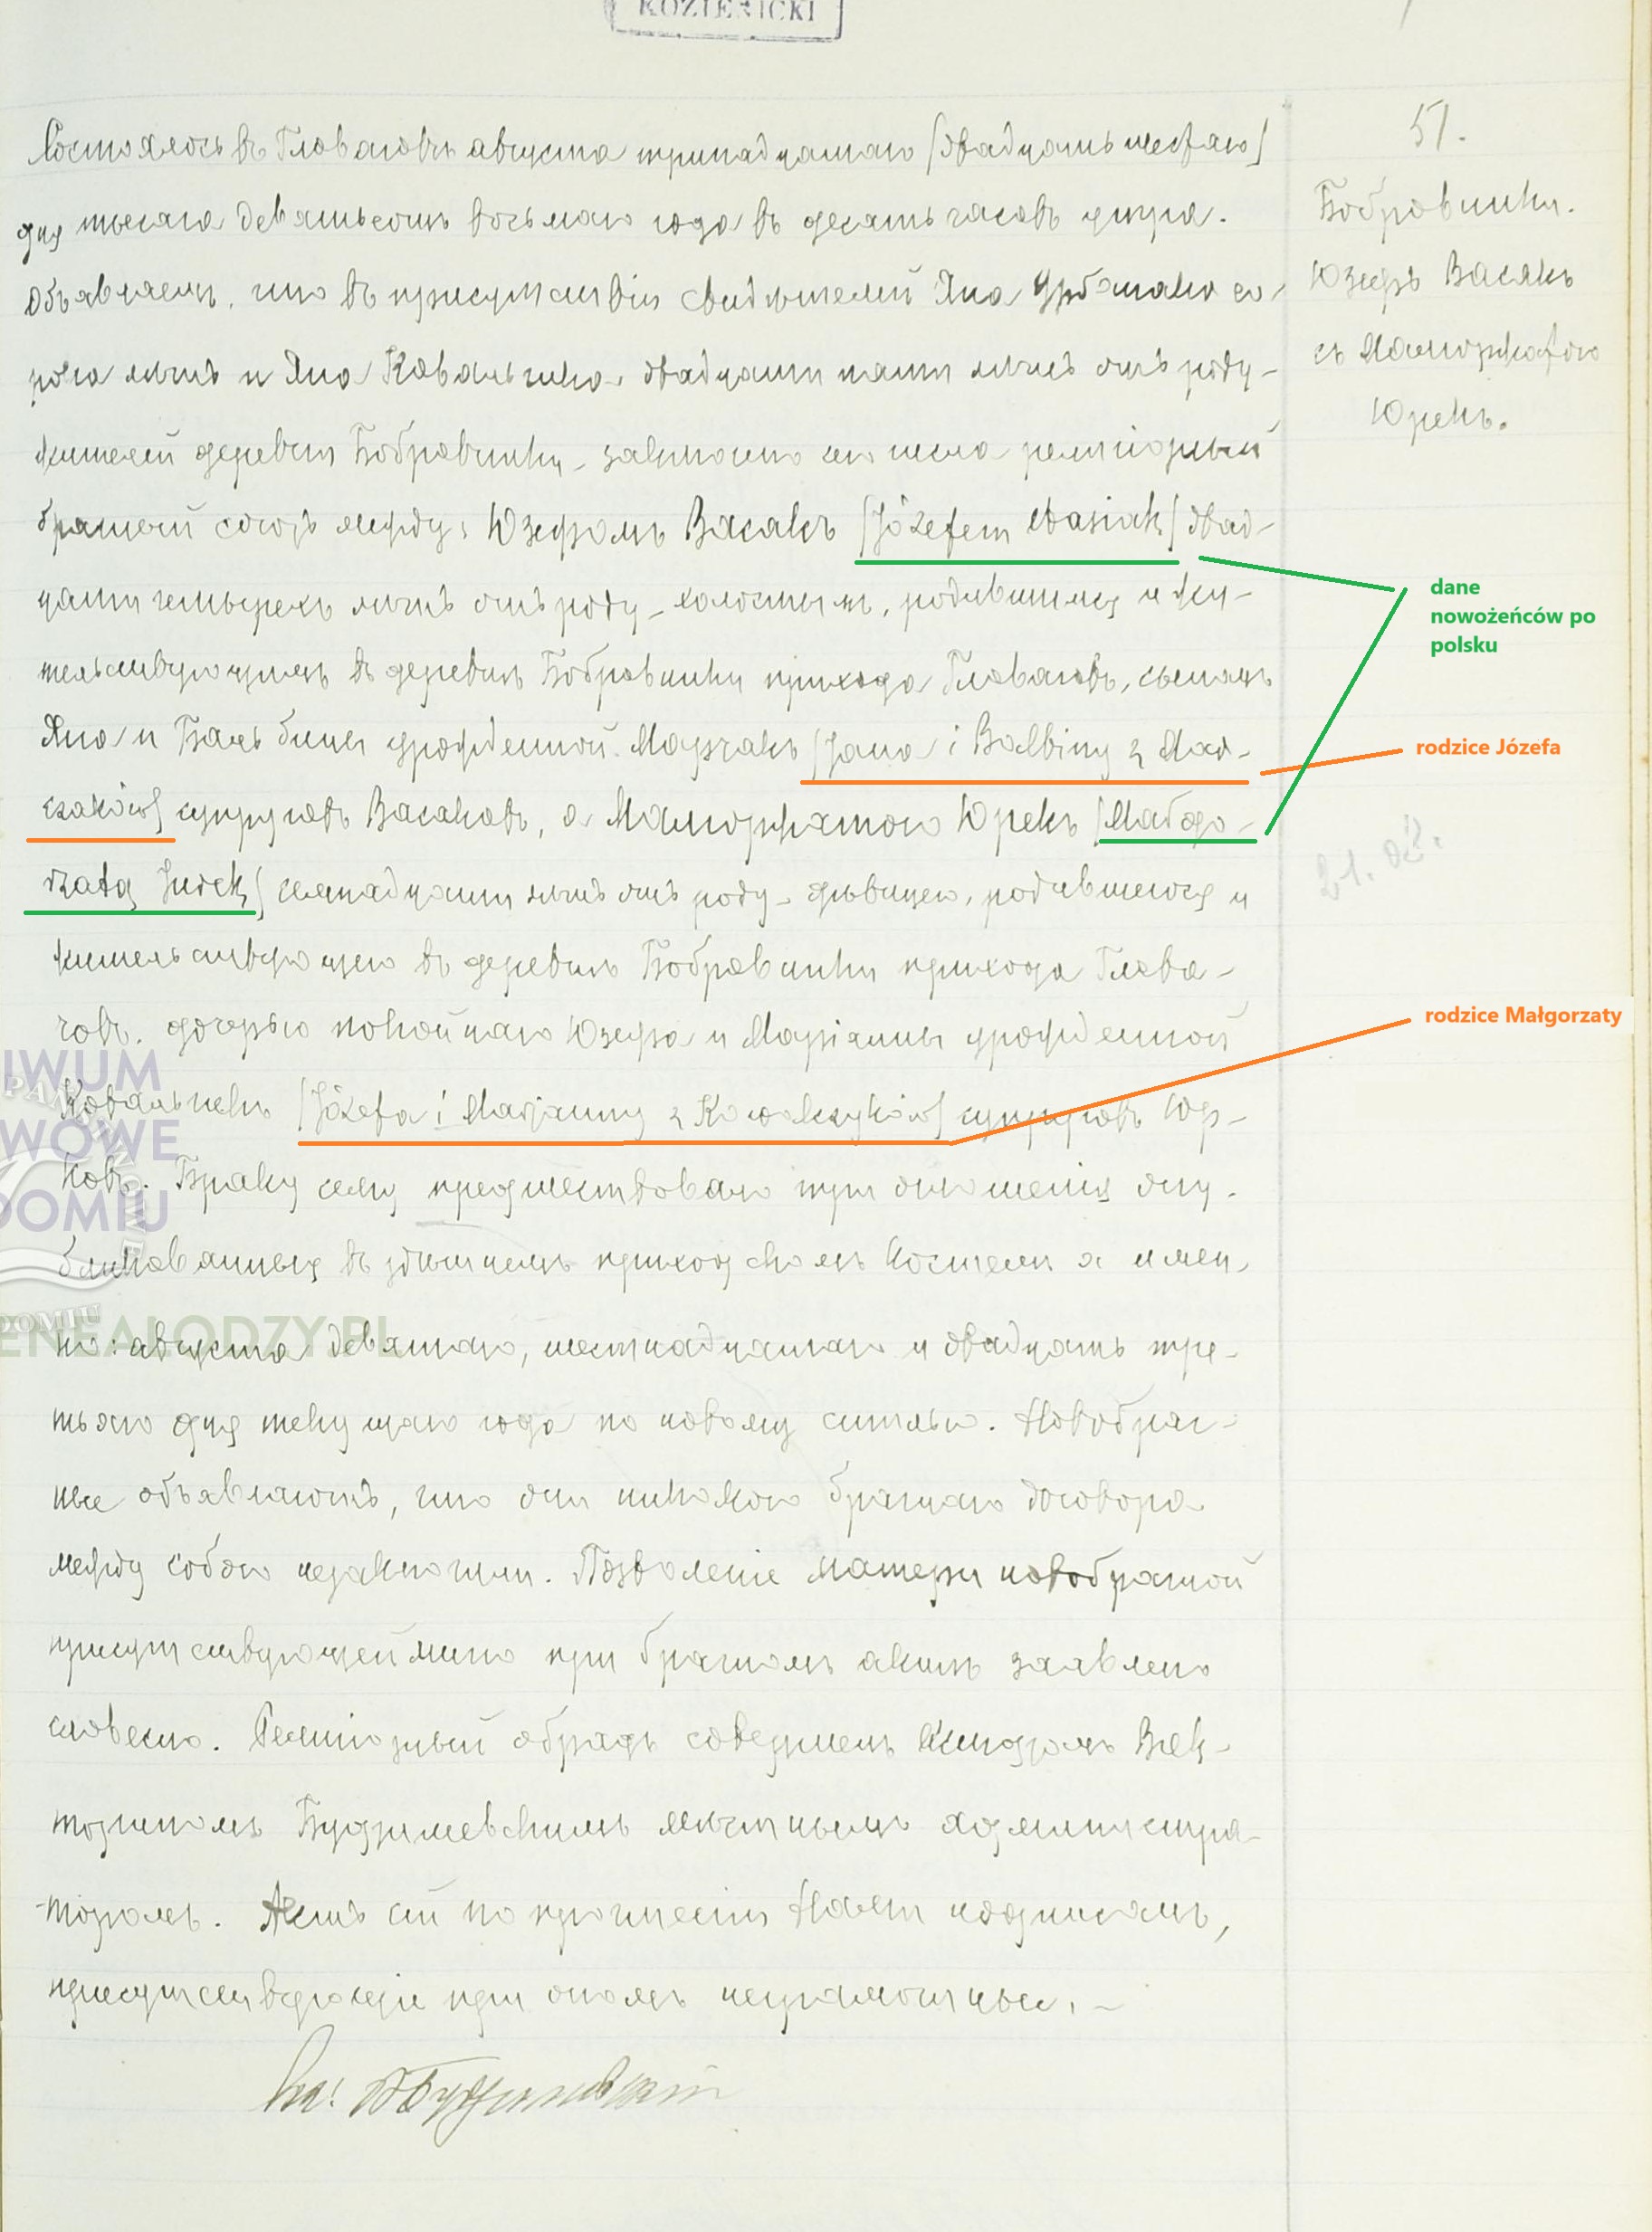 KOZIENICKI
51.
Бобровники.
Юзефъ Васякъ
съ Малгоржатою
Юрекъ.
Состоялось въ Гловачовѣ августа тринадцатаго /двадцать шестаго/
дня тысяча девятьсотъ восьмаго года въ десять часовъ утра.
Объявляемъ, что въ присутствіи свидѣтелей Яна Урбаника со-
рока лѣтъ и Яна Ковальчика, двадцати пяти лѣтъ отъ роду -
жителей деревни Бобровники - заключено сего числа религіозный
брачный союзъ между: Юзефомъ Васякъ /Józefem Wasiak/ двад-
цати четырехъ лѣтъ отъ роду - холостымъ, родившимся и жи-
тельствующимъ въ деревнѣ Бобровники прихода Гловачовъ, сыномъ
Яна и Бальбины урожденной Марчакъ /Jana i Balbiny z Mar-
czaków/ супруговъ Васяковъ, а Малгоржатою Юрекъ /Małgo-
rzatą Jurek/ семнадцати лѣтъ отъ роду - дѣвицею, родившеюся и
жительствующею въ деревнѣ Бобровники прихода Глова-
човъ, дочерью покойнаго Юзефа и Маріанны урожденной
Ковальчикъ /Józefa i Marjanny z Kowalczyków/ супруговъ Юр-
ковъ. Браку сему предшествовало три оглашенія опу-
бликованныя въ здѣшнемъ приходскомъ костелѣ а имен-
но: августа девятаго, шестнадцатаго и двадцать тре-
тьяго дня текущаго года по новому стилю. Новобрач-
ные объявляютъ, что они никакого брачнаго договора
между собою незаключили. Позволеніе матери новобрачной
присутствующей лично при брачномъ актѣ заявлено
словесно. Религіозный обрядъ совершенъ Ксендзомъ Вик-
ториномъ Будзишевскимъ мѣстнымъ администра-
торомъ. Актъ сей по прочтеніи Нами подписанъ,
присутствующіе при ономъ неграмотные. -
dane
nowożeńców po
polsku
rodzice Józefa
21. 08.
rodzice Małgorzaty